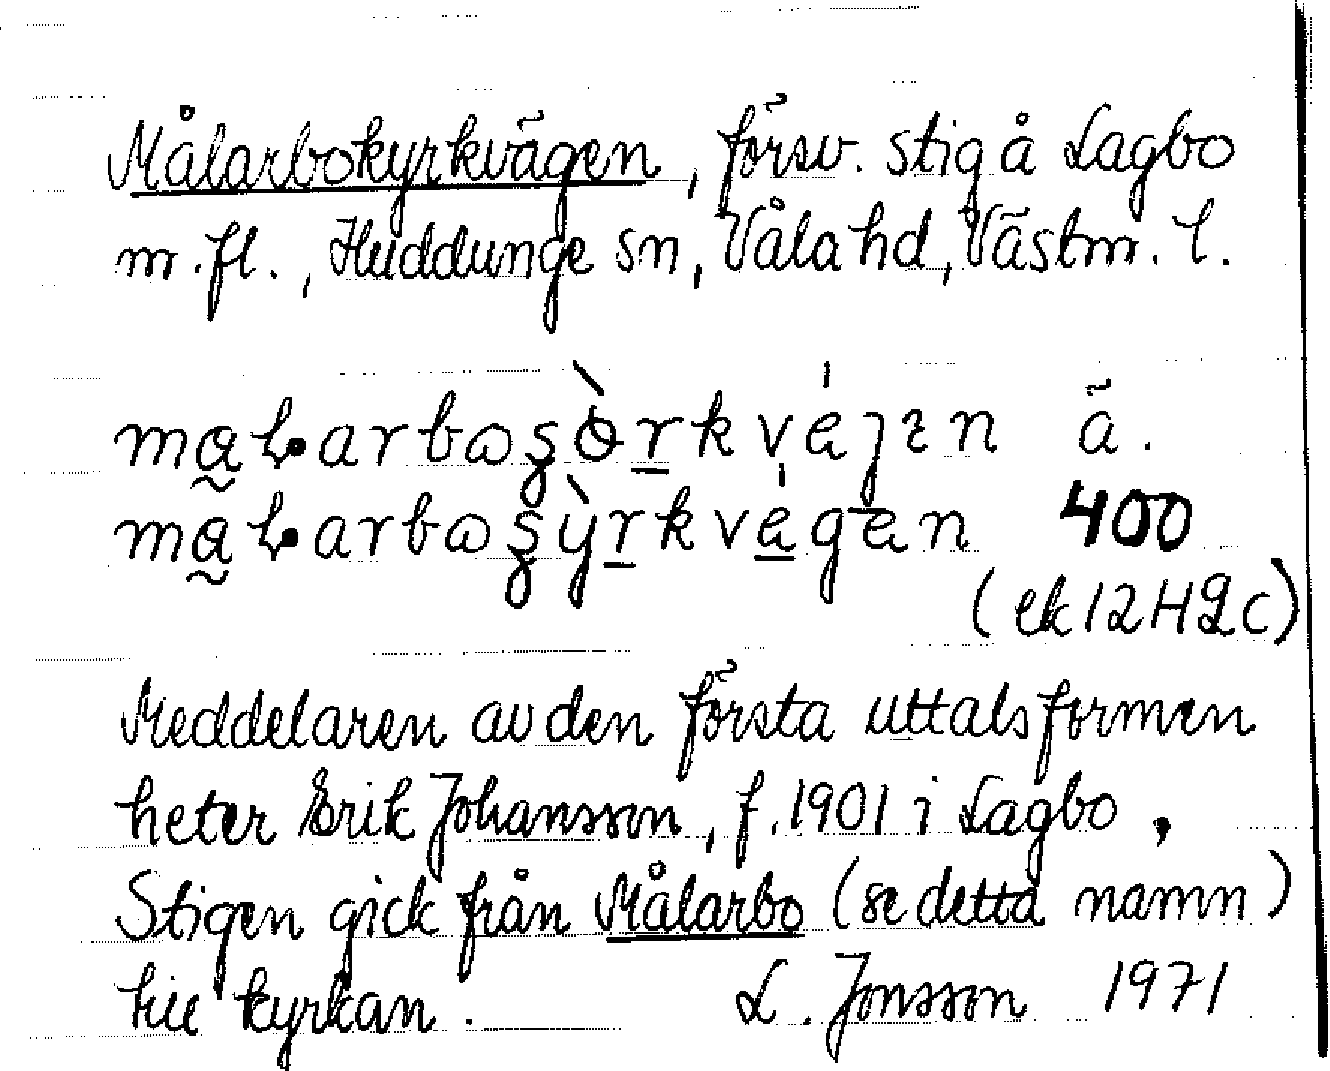 Målarbokyrkvägen, försv. stig å Lagbo
m.fl., Huddunge sn, Våla hd, Västm. l.
ä.
400
(ek 12H2c)
Meddelaren av den första uttalsformen
heter Erik Johansson, f. 1901 i Lagbo,
Stigen gick från Målarbo (se detta namn)
till kyrkan. L. Jonsson 1971